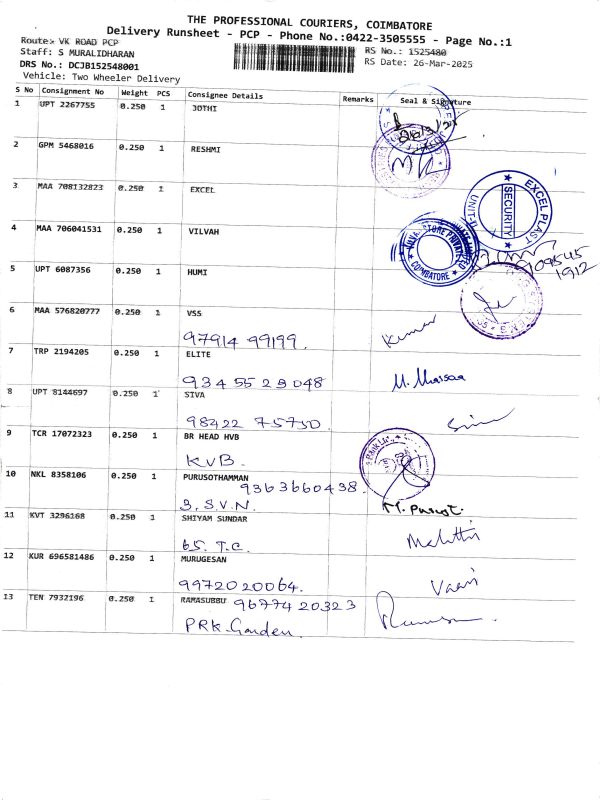 THE PROFESSIONAL COURIERS, COIMBATORE
Delivery Runsheet - PCP - Phone No.:0422-3505555 - Page No.:1
Route:- VK ROAD PCP
RS No.: 1525480
Staff: S MURALIDHARAN
RS Date: 26-Mar-2025
DRS No.: DCJB152548001
Vehicle: Two Wheeler Delivery
S No Consignment No Weight PCS Consignee Details Remarks Seal & Signature
1 UPT 2267755 0.250 1 JOTHI
2 GPM 5468016 0.250 1 RESHMI
3 MAA 708132823 0.250 1 EXCEL
EXCEL PLAST
SECURITY
UNIT-II
4 MAA 706041531 0.250 1 VILVAH
STORE PRIVATE LIMITED
COIMBATORE
909545
1912
5 UPT 6087356 0.250 1 HUMI
6 MAA 576820777 0.250 1 VSS
97914 99199. Kumar
7 TRP 2194205 0.250 1 ELITE
93455 29048
8 UPT 8144697 0.250 1 SIVA
98422 75750
9 TCR 17072323 0.250 1 BR HEAD HVB
KVB.
10 NKL 8358106 0.250 1 PURUSOTHAMMAN
9363660438.
3, S.V.N.
11 KVT 3296168 0.250 1 SHIYAM SUNDAR
65. T.C.
12 KUR 696581486 0.250 1 MURUGESAN
9972020064.
13 TEN 7932196 0.250 1 RAMASUBBU 9677420323
PRK Garden.